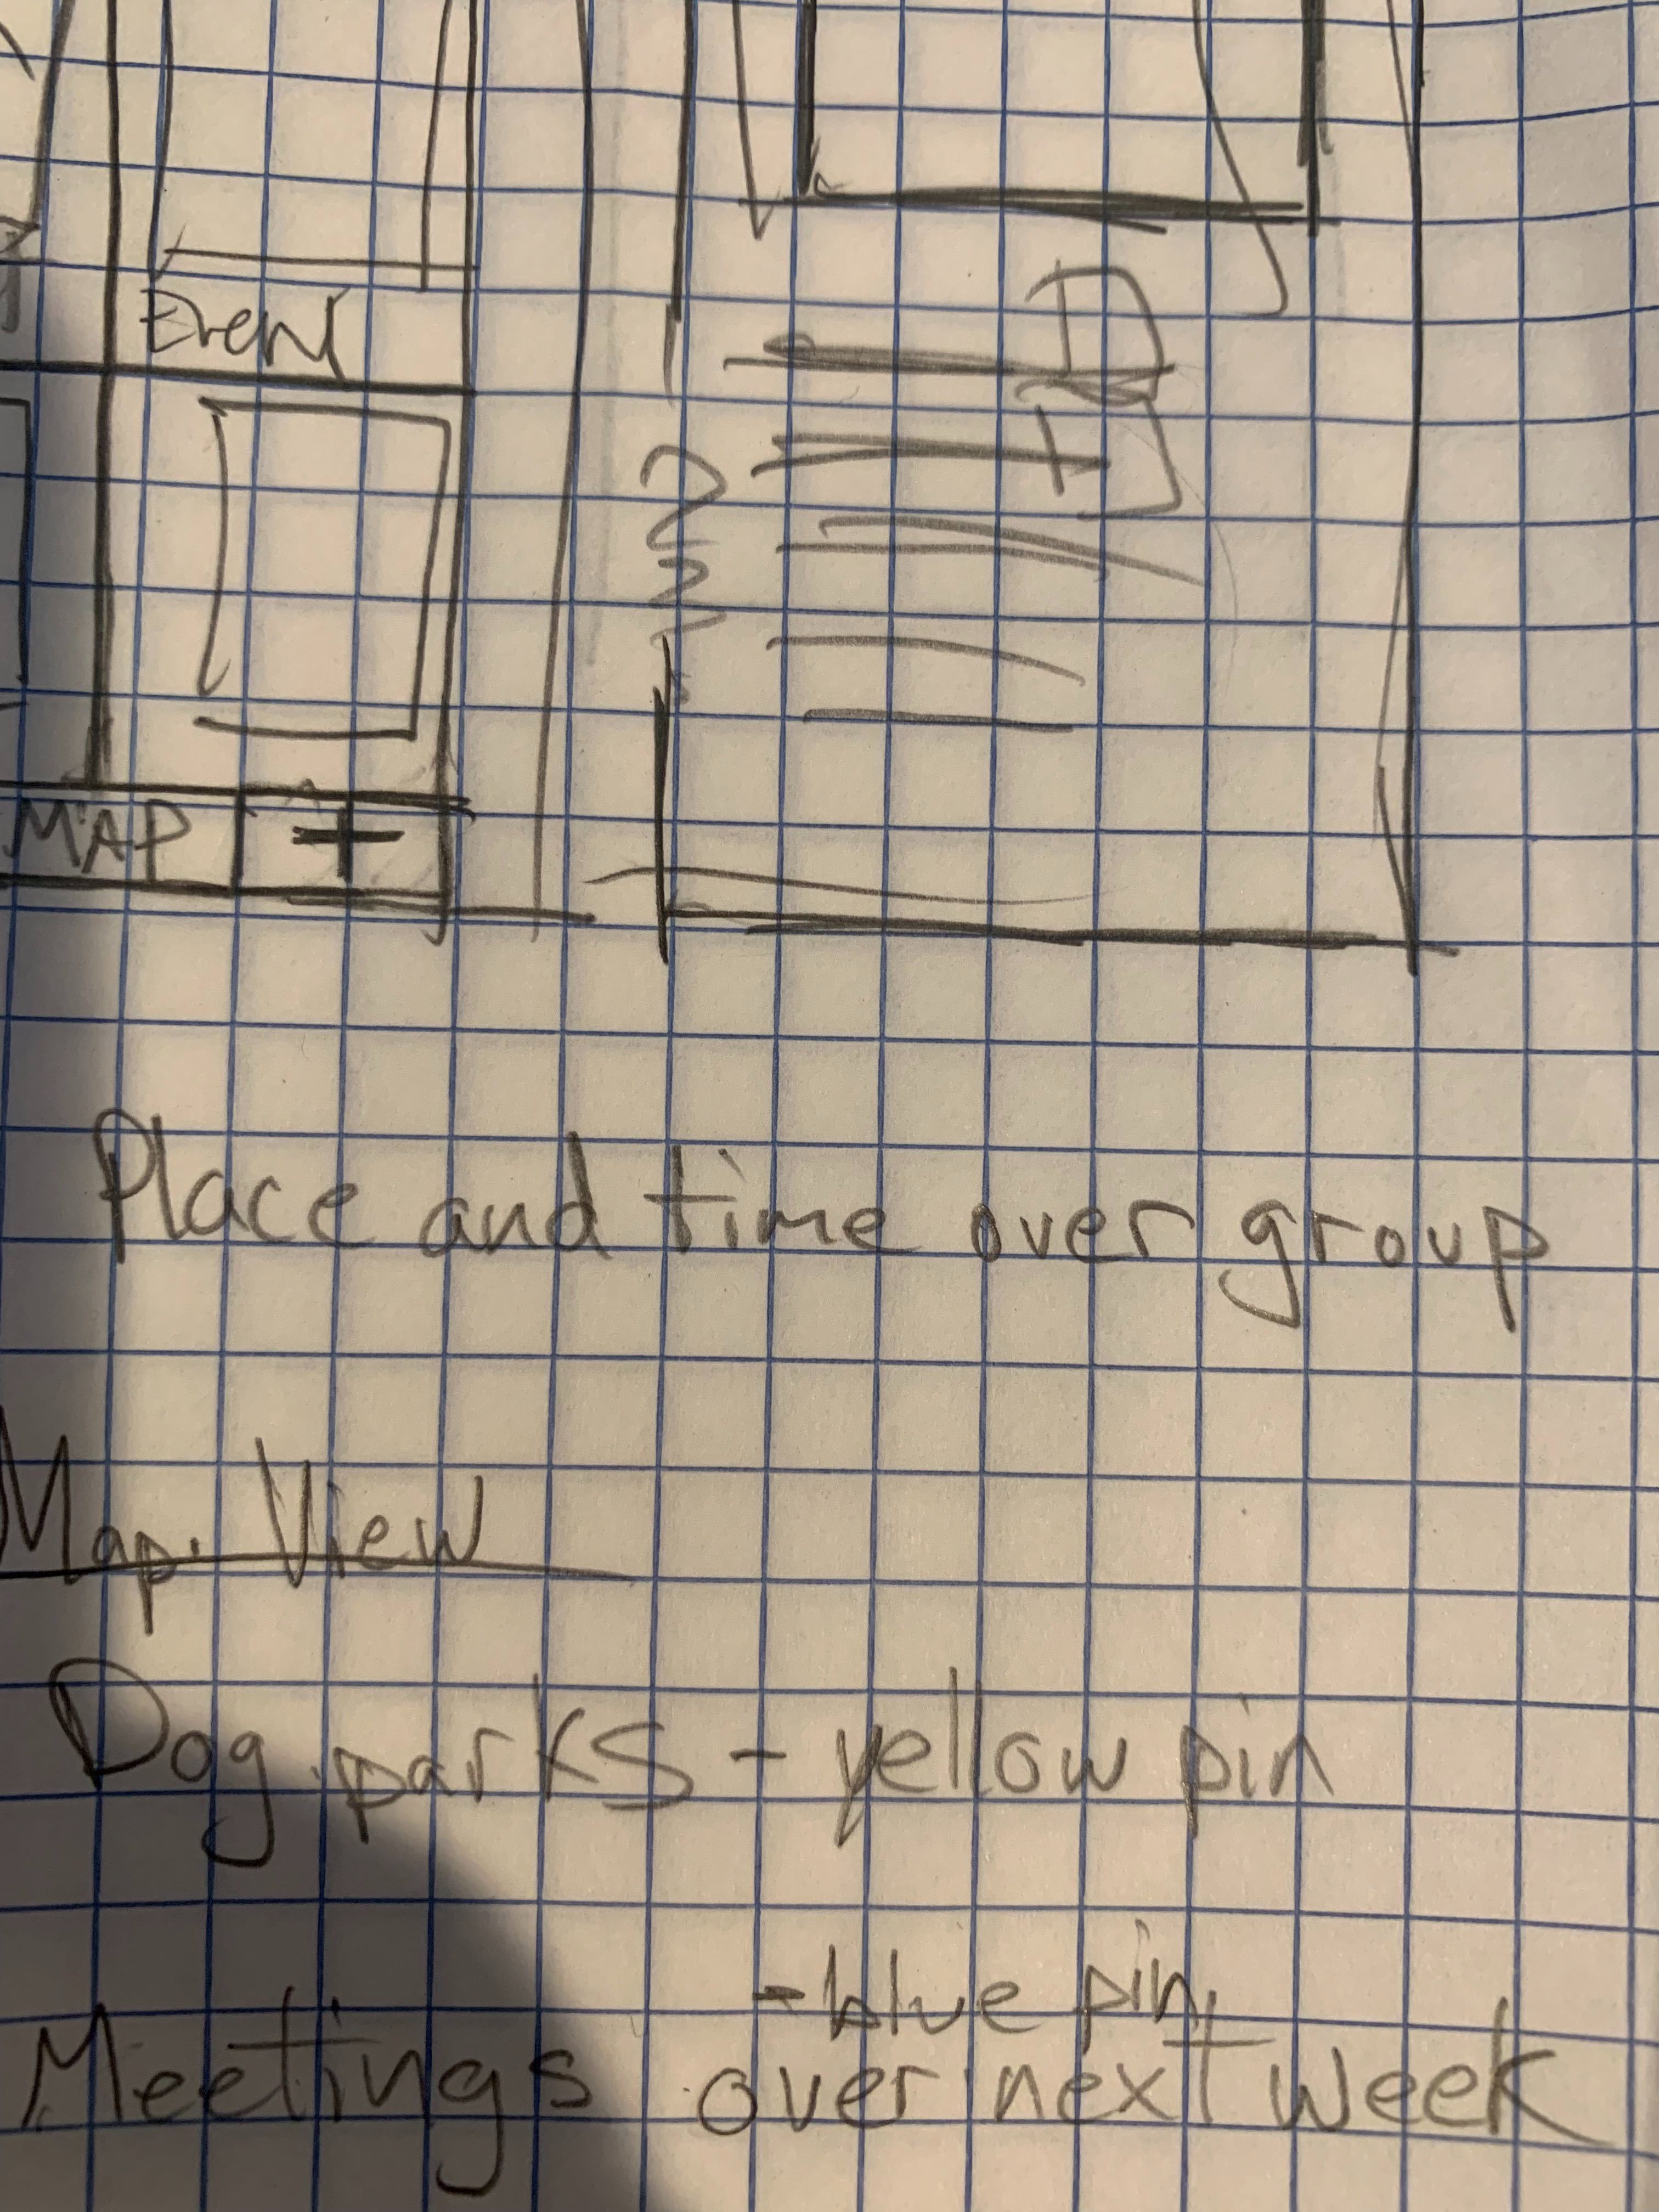 Event
MAP +
Place and time over group
Map View
Dog parks - yellow pin
- blue pin
Meetings over next week